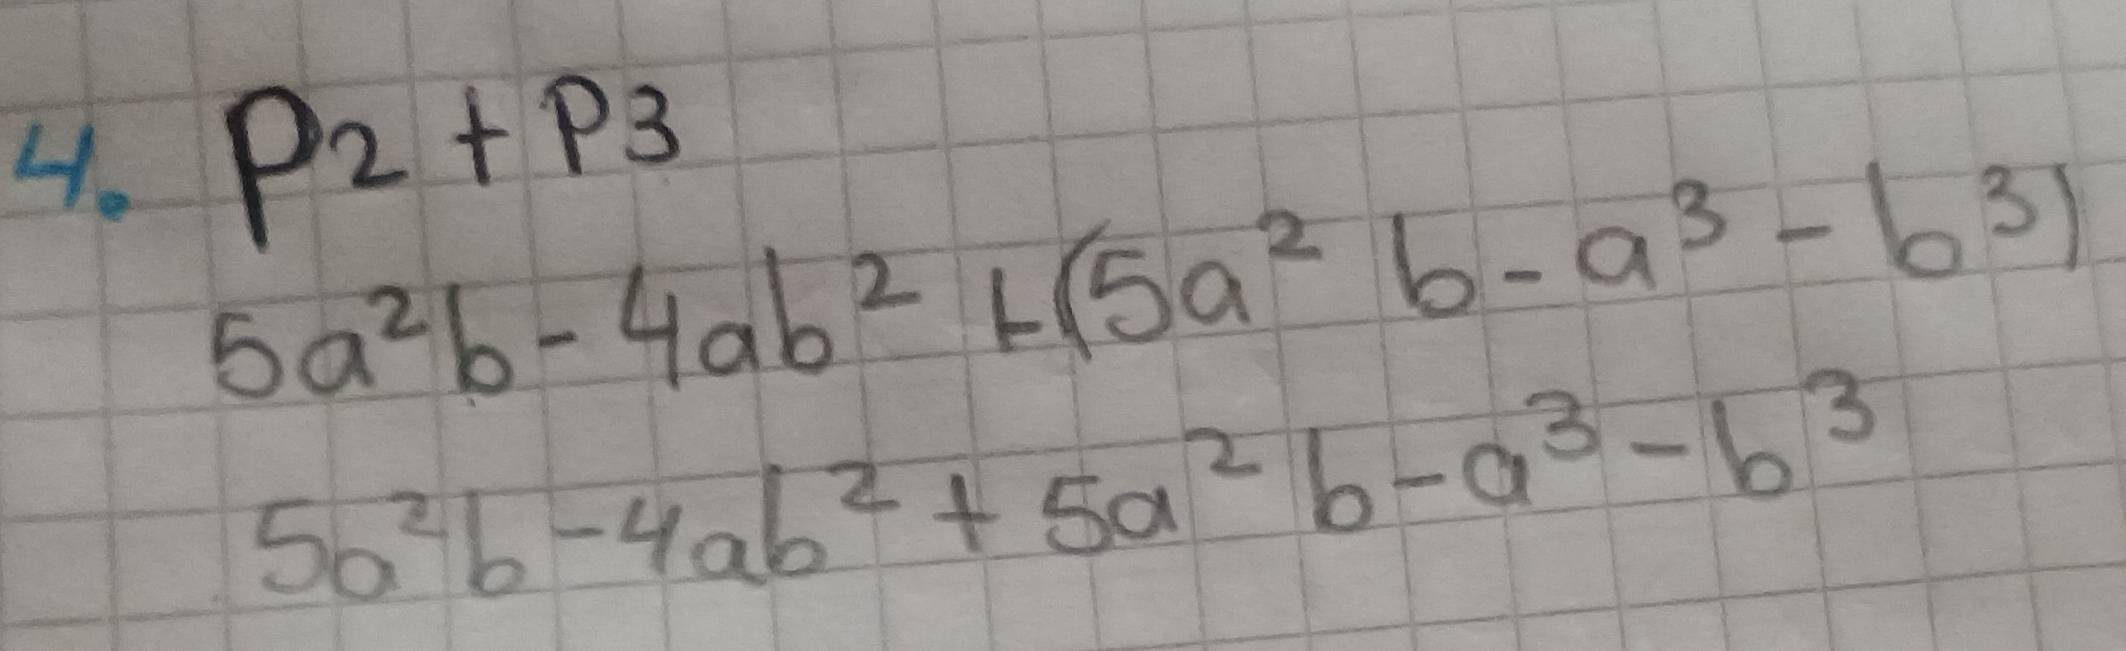 4. P2 + P3
5a²b - 4ab² + (5a² b - a³ - b³)
5a²b - 4ab² + 5a² b - a³ - b³